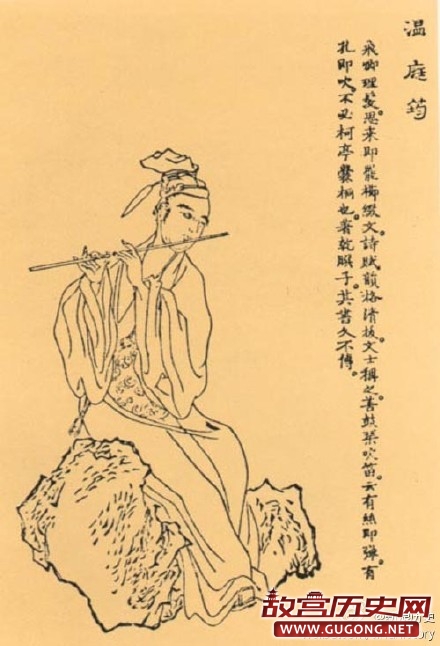 温庭筠
飛卿理髮。思来即罷櫛綴文。詩賦韻格清拔。文士稱之。善鼓琴吹笛。云有絲即彈。有
孔即吹。不必柯亭爨桐也。著乾䐶子。其書久不傳。
故宫历史网
WWW.GUGONG.NET